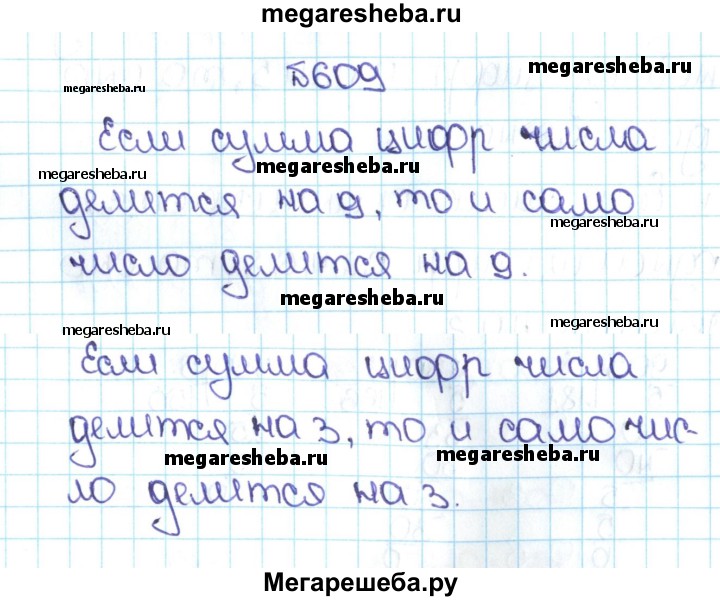 megaresheba.ru
№609
megaresheba.ru
megaresheba.ru
Если сумма цифр числа
megaresheba.ru
megaresheba.ru
делится на 9, то и само
megaresheba.ru
число делится на 9.
megaresheba.ru
megaresheba.ru
megaresheba.ru
Если сумма цифр числа
делится на 3, то и само чис-
megaresheba.ru
megaresheba.ru
ло делится на 3.
Мегарешеба.ру